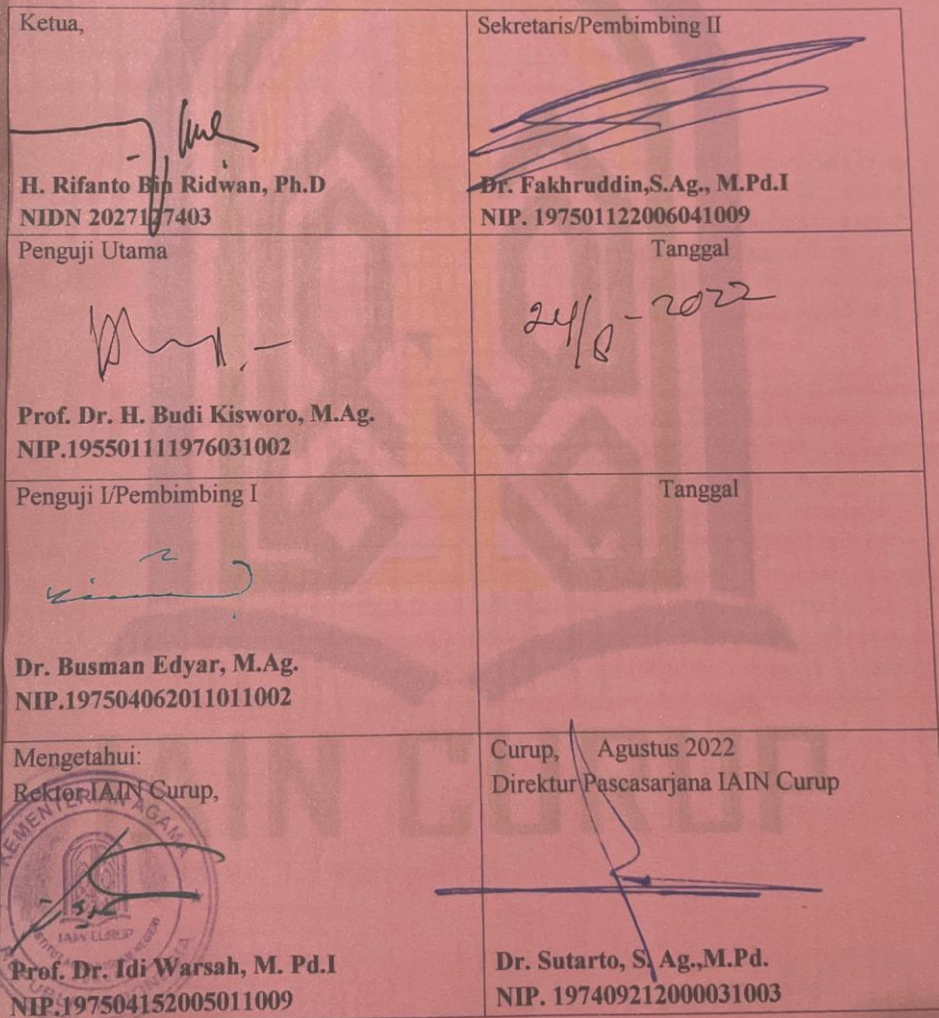 Ketua,
H. Rifanto Bin Ridwan, Ph.D
NIDN 2027127403
Sekretaris/Pembimbing II
Dr. Fakhruddin,S.Ag., M.Pd.I
NIP. 197501122006041009
Penguji Utama
Prof. Dr. H. Budi Kisworo, M.Ag.
NIP.195501111976031002
Tanggal
24/8-2022
Penguji I/Pembimbing I
Dr. Busman Edyar, M.Ag.
NIP.197504062011011002
Tanggal
Mengetahui:
Rektor IAIN Curup,
KEMENTERIAN AGAMA
IAIN CURUP
Prof. Dr. Idi Warsah, M. Pd.I
NIP.197504152005011009
Curup, Agustus 2022
Direktur Pascasarjana IAIN Curup
Dr. Sutarto, S. Ag.,M.Pd.
NIP. 197409212000031003
IAIN CURUP